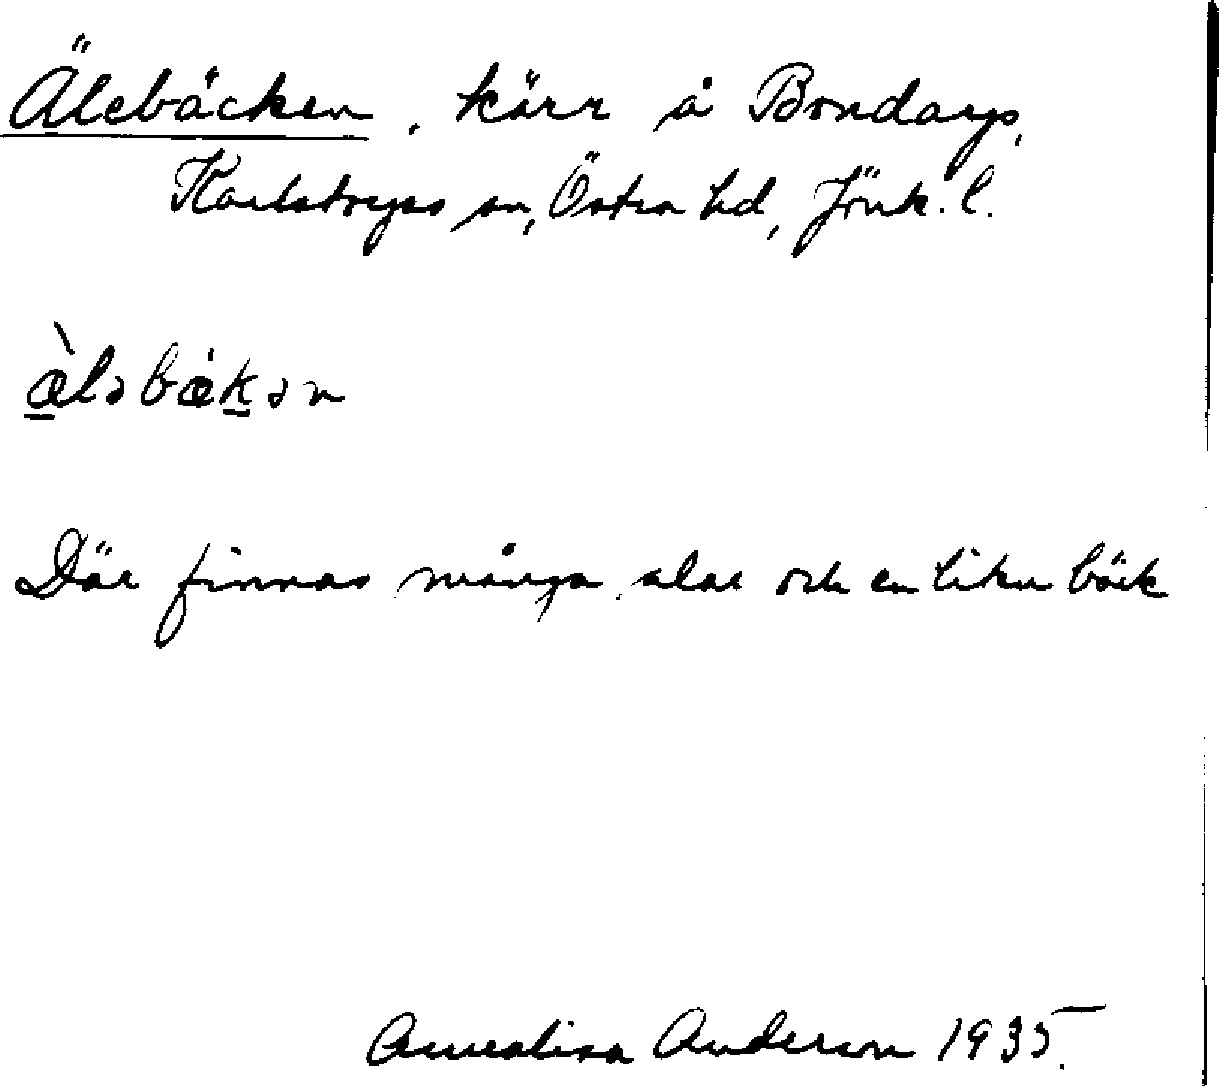 Älebäcken, kärr å Bondarp,
Karlstorps sn, Östra hd, Jönk. l.
æ̀ləbækən
Där finnas många alar och en liten bäck
Annalisa Anderson 1935.